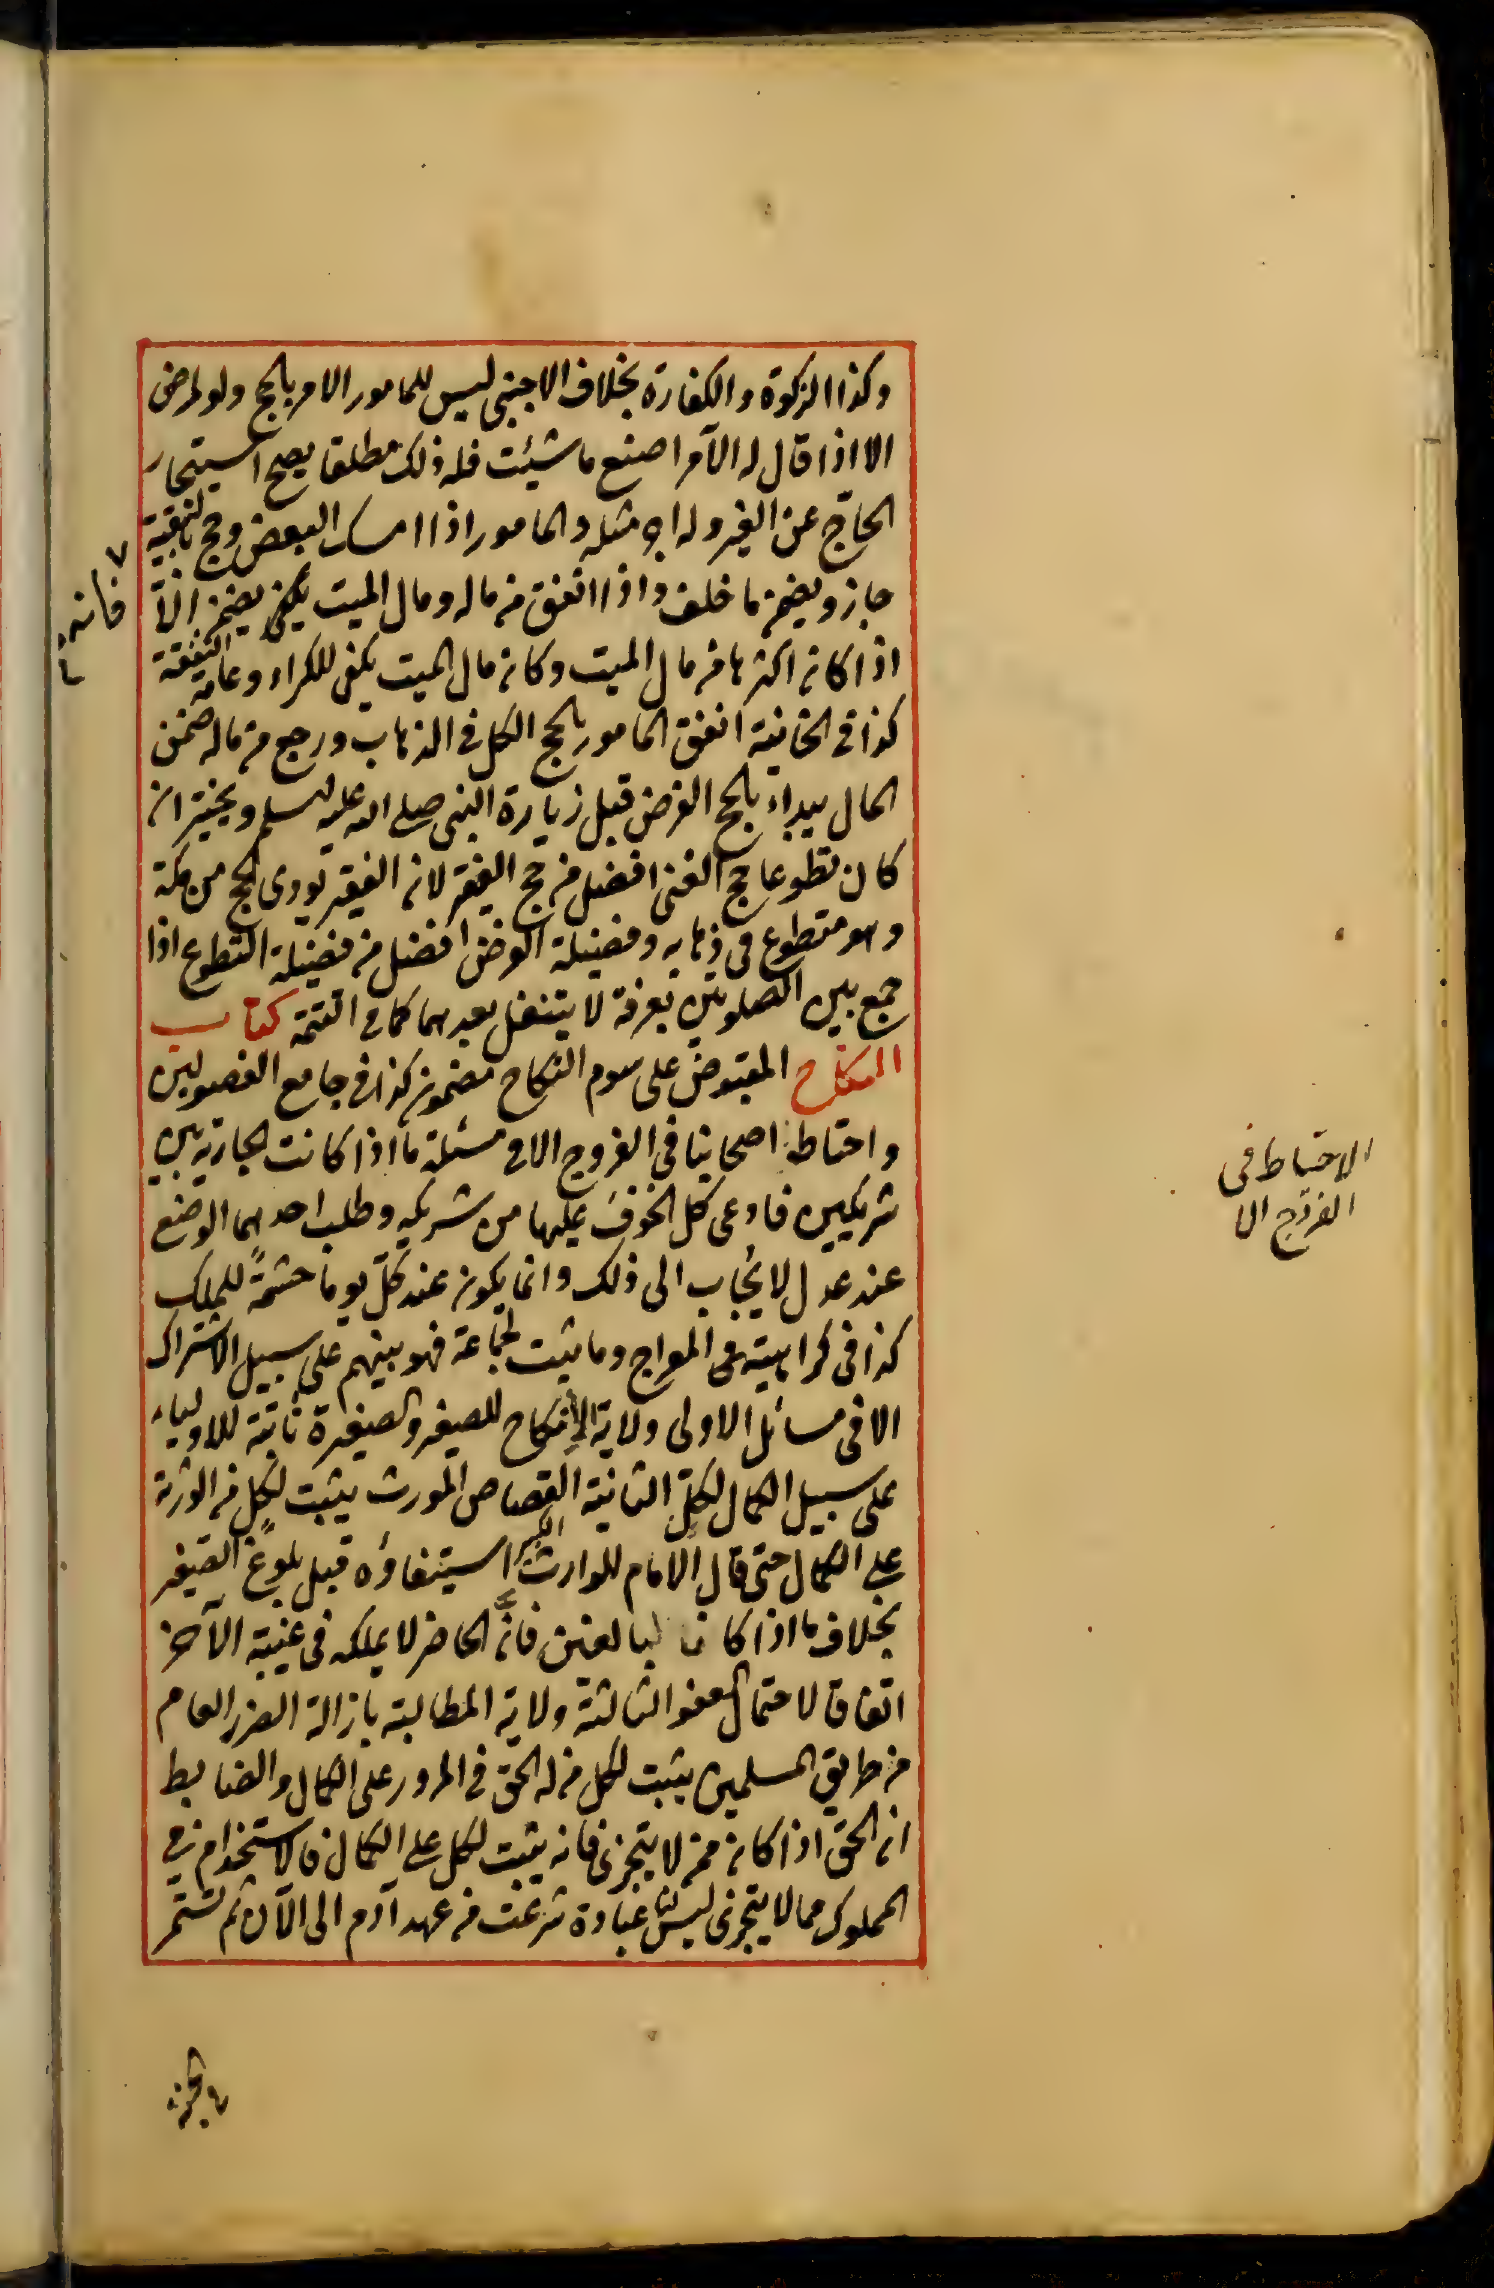 وكذا الزكوة والكفارة بخلاف الاجنبى ليس للمامور الامر بالحج ولو لمرض
الا اذا قال له الآمر اصنع ما شئت فله ذلك مطلقا يصح استيجار
الحاج عن الغير وله اجر مثله والمامور اذا امسك البعض وحج بالبقية
جاز ويضمن ما خلف واذا انفق من ماله ومال الميت يكفى يضمن الا
اذا كان اكثرها من مال الميت وكان مال الميت يكفى للكراء وعامة النفقة
كذا فى الخانية انفق المامور بالحج الكل فى الذهاب ورجع من ماله ضمن
المال يبداء بالحج الفرض قبل زيارة النبى صلى الله عليه وسلم ويخير ان
كان تطوعا حج الغنى افضل من حج الفقير لان الفقير يودى الحج من مكة
وهو متطوع فى ذهابه وفضيلة الفرض افضل من فضيلة التطوع اذا
جمع بين الصلوتين بعرفة لا يتنفل بعدهما كما فى التتمة كتاب
النكاح المقبوض على سوم النكاح مضمون كذا فى جامع الفصولين
واحتاط اصحابنا فى الفروج الا فى مسئلة ما اذا كانت الجارية بين
شريكين فادعى كل الخوف عليها من شريكه وطلب احدهما الوضع
عند عدل لا يُجاب الى ذلك وانما يكون عند كلٍّ يوما حشمةً للملك
كذا فى كراهية المعراج وما يثبت لجماعة فهو بينهم على سبيل الاشتراك
الا فى مسائل الاولى ولاية الإنكاح للصغير والصغيرة ثابتة للاولياء
على سبيل الكمال لكلٍّ الثانية القصاص المورث يثبت لكلٍ من الورثة
على الكمال حتى قال الامام للوارث الكبير استيفاؤه قبل بلوغ الصغير
بخلاف ما اذا كانا بالغين فانَّ الحاضر لا يملكه فى غيبة الآخر
اتفاقا لاحتمال العفو الثالثة ولاية المطالبة بازالة الضرر العام
من طريق المسلمين يثبت لكل من له الحق فى المرور على الكمال والضابط
ان الحق اذا كان مما لا يتجزى فانه يثبت لكل على الكمال فالاستخدام فى
المملوك مما لا يتجزى ليس لنا عبادة شرعت من عهد آدم الى الآن ثم تستمر
فانه
الاحتياط فى
الفروج الا